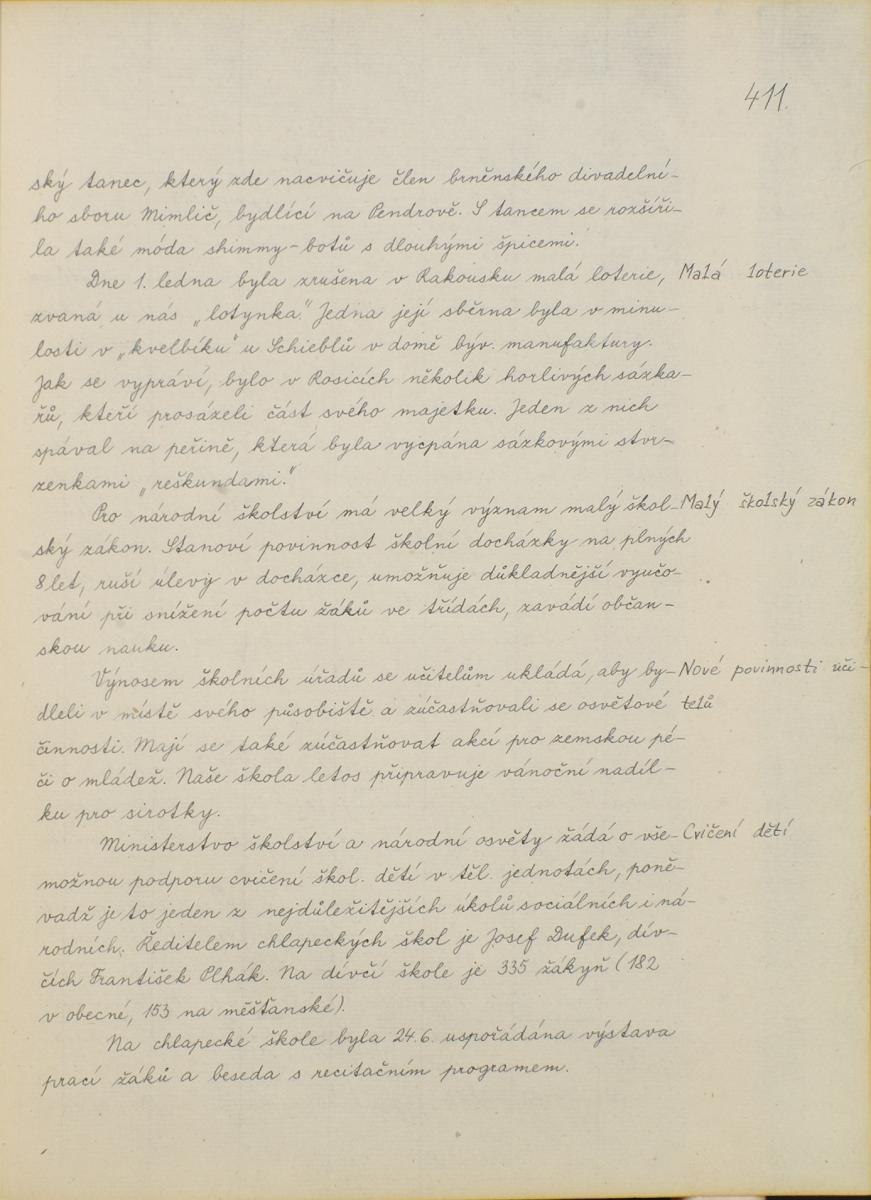 411.
ský tanec, který zde nacvičuje člen brněnského divadelní-
ho sboru Mimlič, bydlící na Pendrově. S tancem se rozšíři-
la také móda shimmy-botů s dlouhými špicemi.
Dne 1. ledna byla zrušena v Rakousku malá loterie, Malá loterie
zvaná u nás „lotynka". Jedna její sběrna byla v minu-
losti v „kvelbíku" u Schieblů v domě býv. manufaktury.
Jak se vypráví, bylo v Rosicích několik horlivých sázka-
řů, kteří prosázeli část svého majetku. Jeden z nich
spával na peřině, která byla vycpána sázkovými stvr-
zenkami „reškundami."
Pro národní školství má velký význam malý škol- Malý školský zákon
ský zákon. Stanoví povinnost školní docházky na plných
8 let, ruší úlevy v docházce, umožňuje důkladnější vyučo-
vání při snížení počtu žáků ve třídách, zavádí občan-
skou nauku.
Výnosem školních úřadů se učitelům ukládá, aby by- Nové povinnosti uči-
dleli v místě svého působiště a zúčastňovali se osvětové telů
činnosti. Mají se také zúčastňovat akcí pro zemskou pé-
či o mládež. Naše škola letos připravuje vánoční nadíl-
ku pro sirotky.
Ministerstvo školství a národní osvěty žádá o vše- Cvičení dětí
možnou podporu cvičení škol. dětí v těl. jednotách, poně-
vadž je to jeden z nejdůležitějších úkolů sociálních i ná-
rodních. Ředitelem chlapeckých škol je Josef Dufek, dív-
čích František Plhák. Na dívčí škole je 335 žákyň (182
v obecné, 153 na měšťanské).
Na chlapecké škole byla 24.6. uspořádána výstava
prací žáků a beseda s recitačním programem.